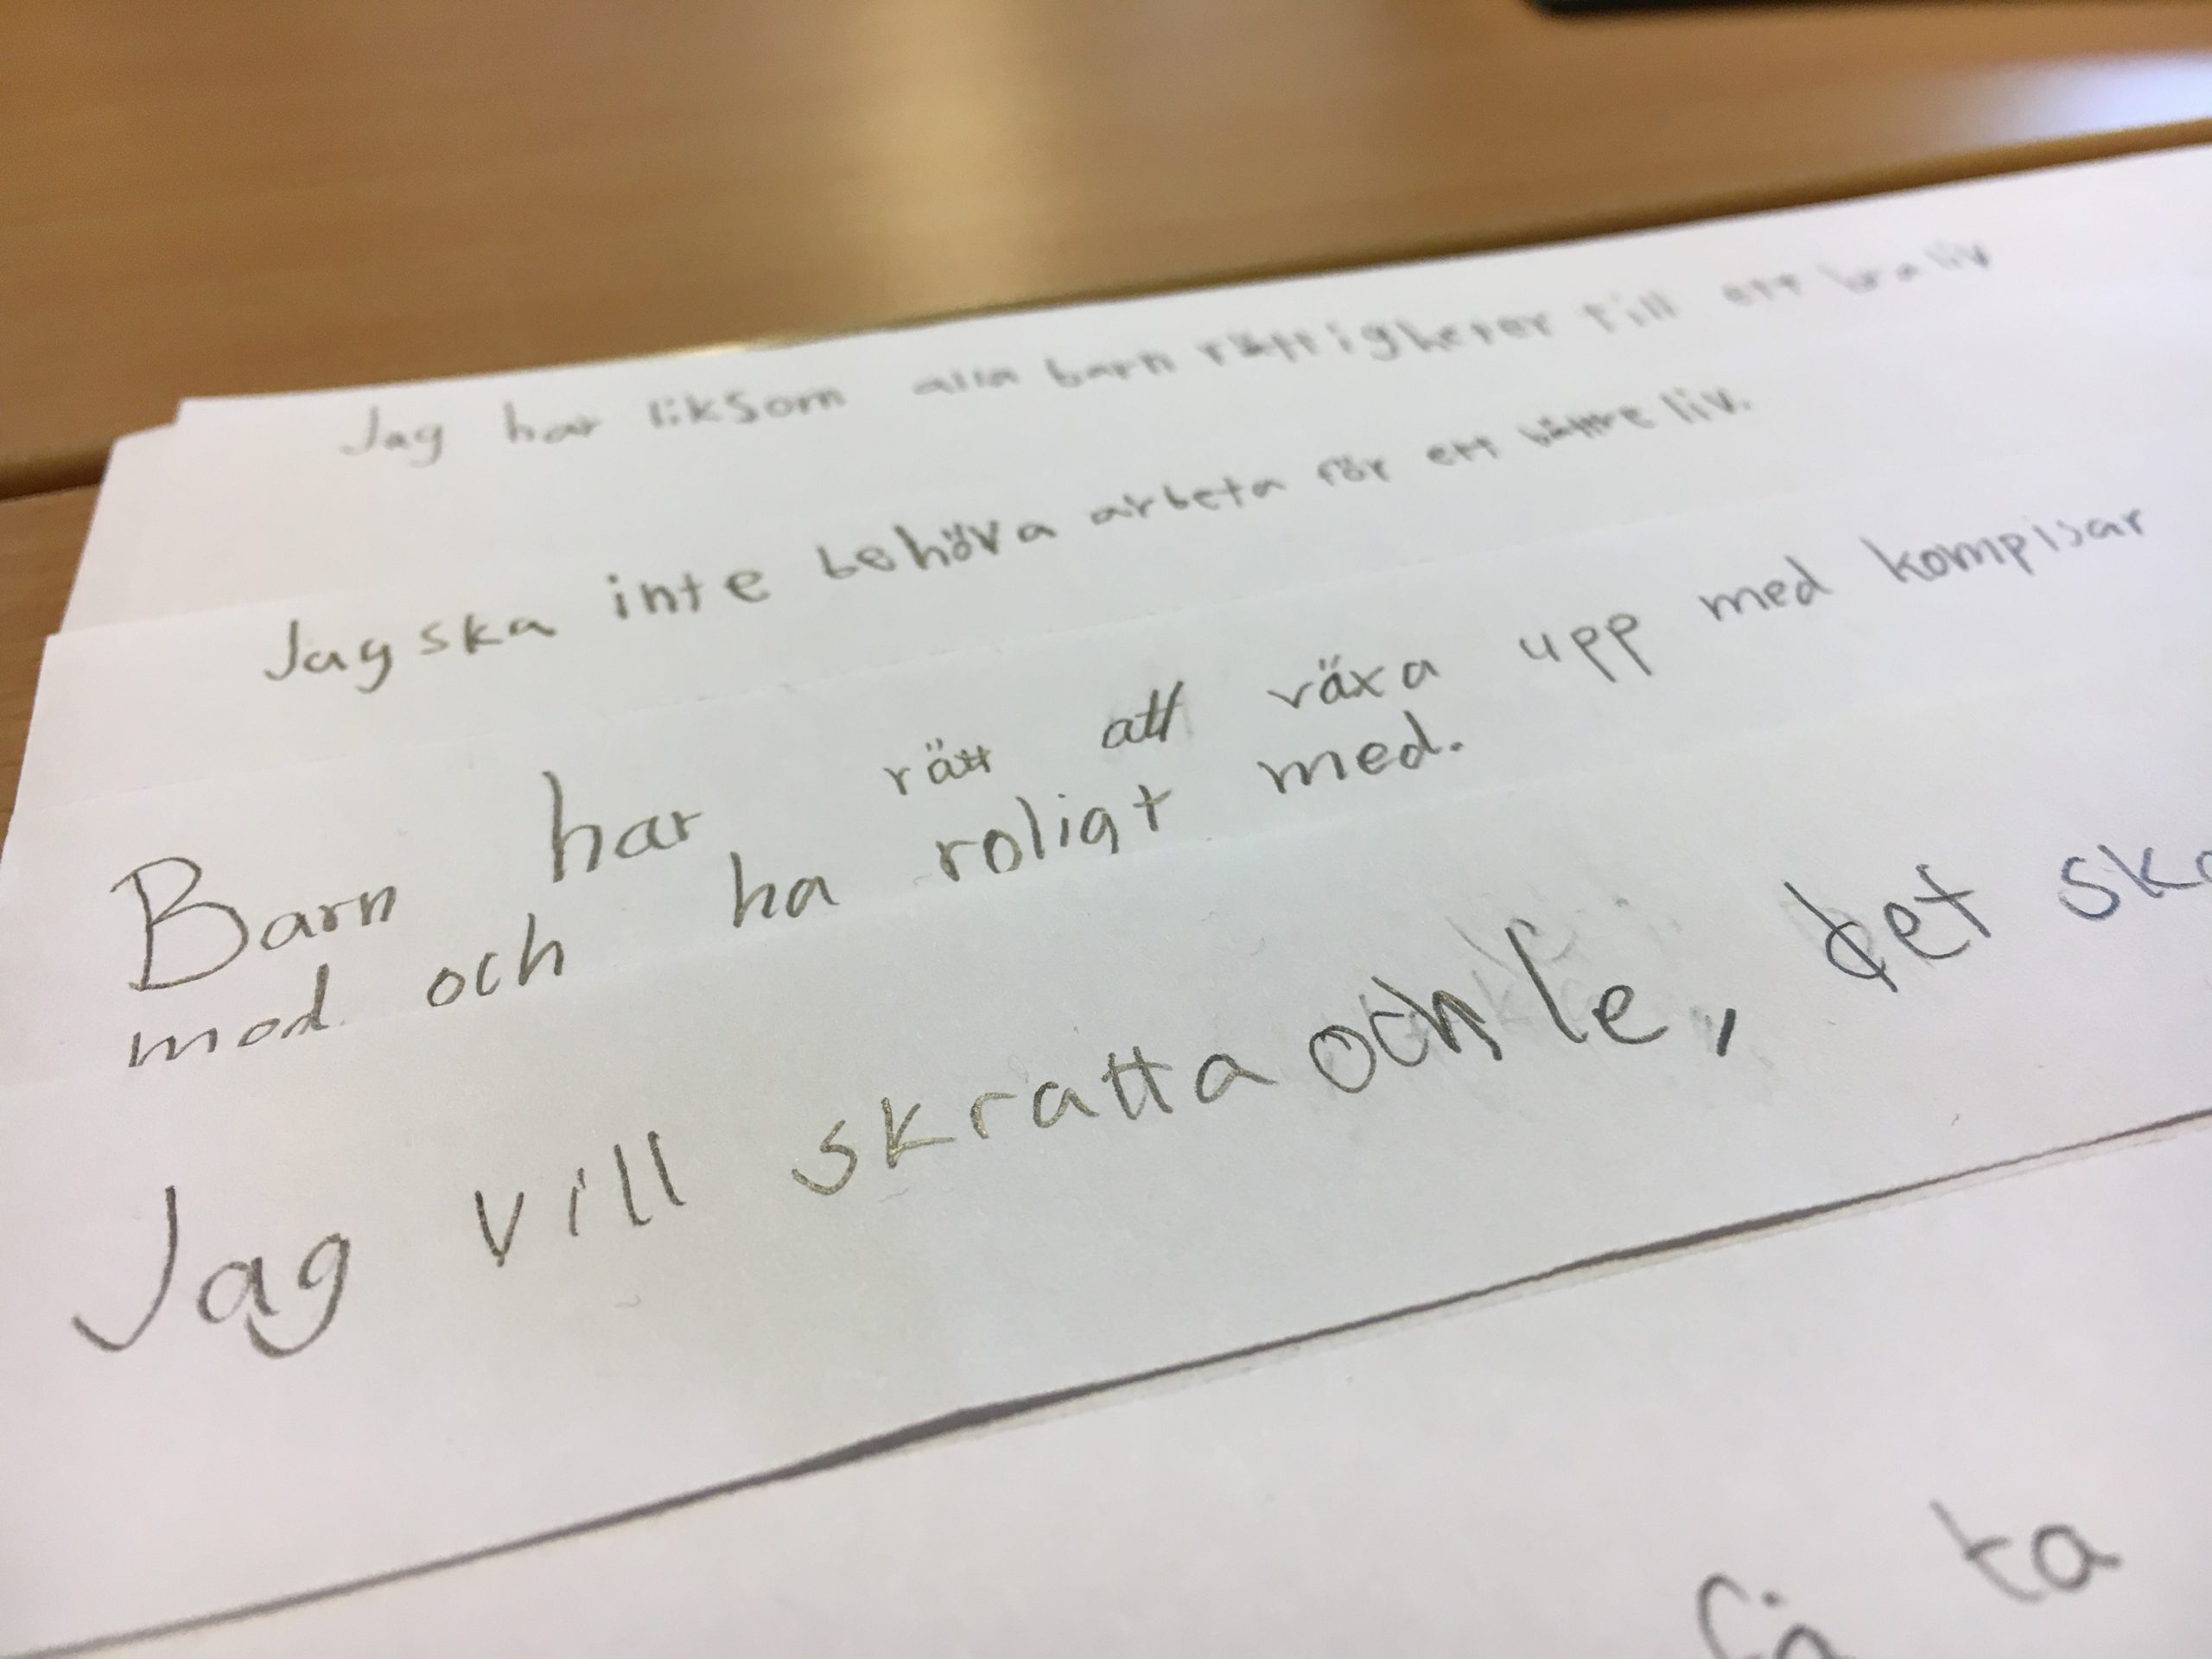 Jag har liksom alla barn rättigheter till ett bra liv
Jag ska inte behöva arbeta för ett bättre liv.
Barn har rätt att växa upp med kompisar
mod och ha roligt med.
Jag vill skratta och le, det ska
få ta